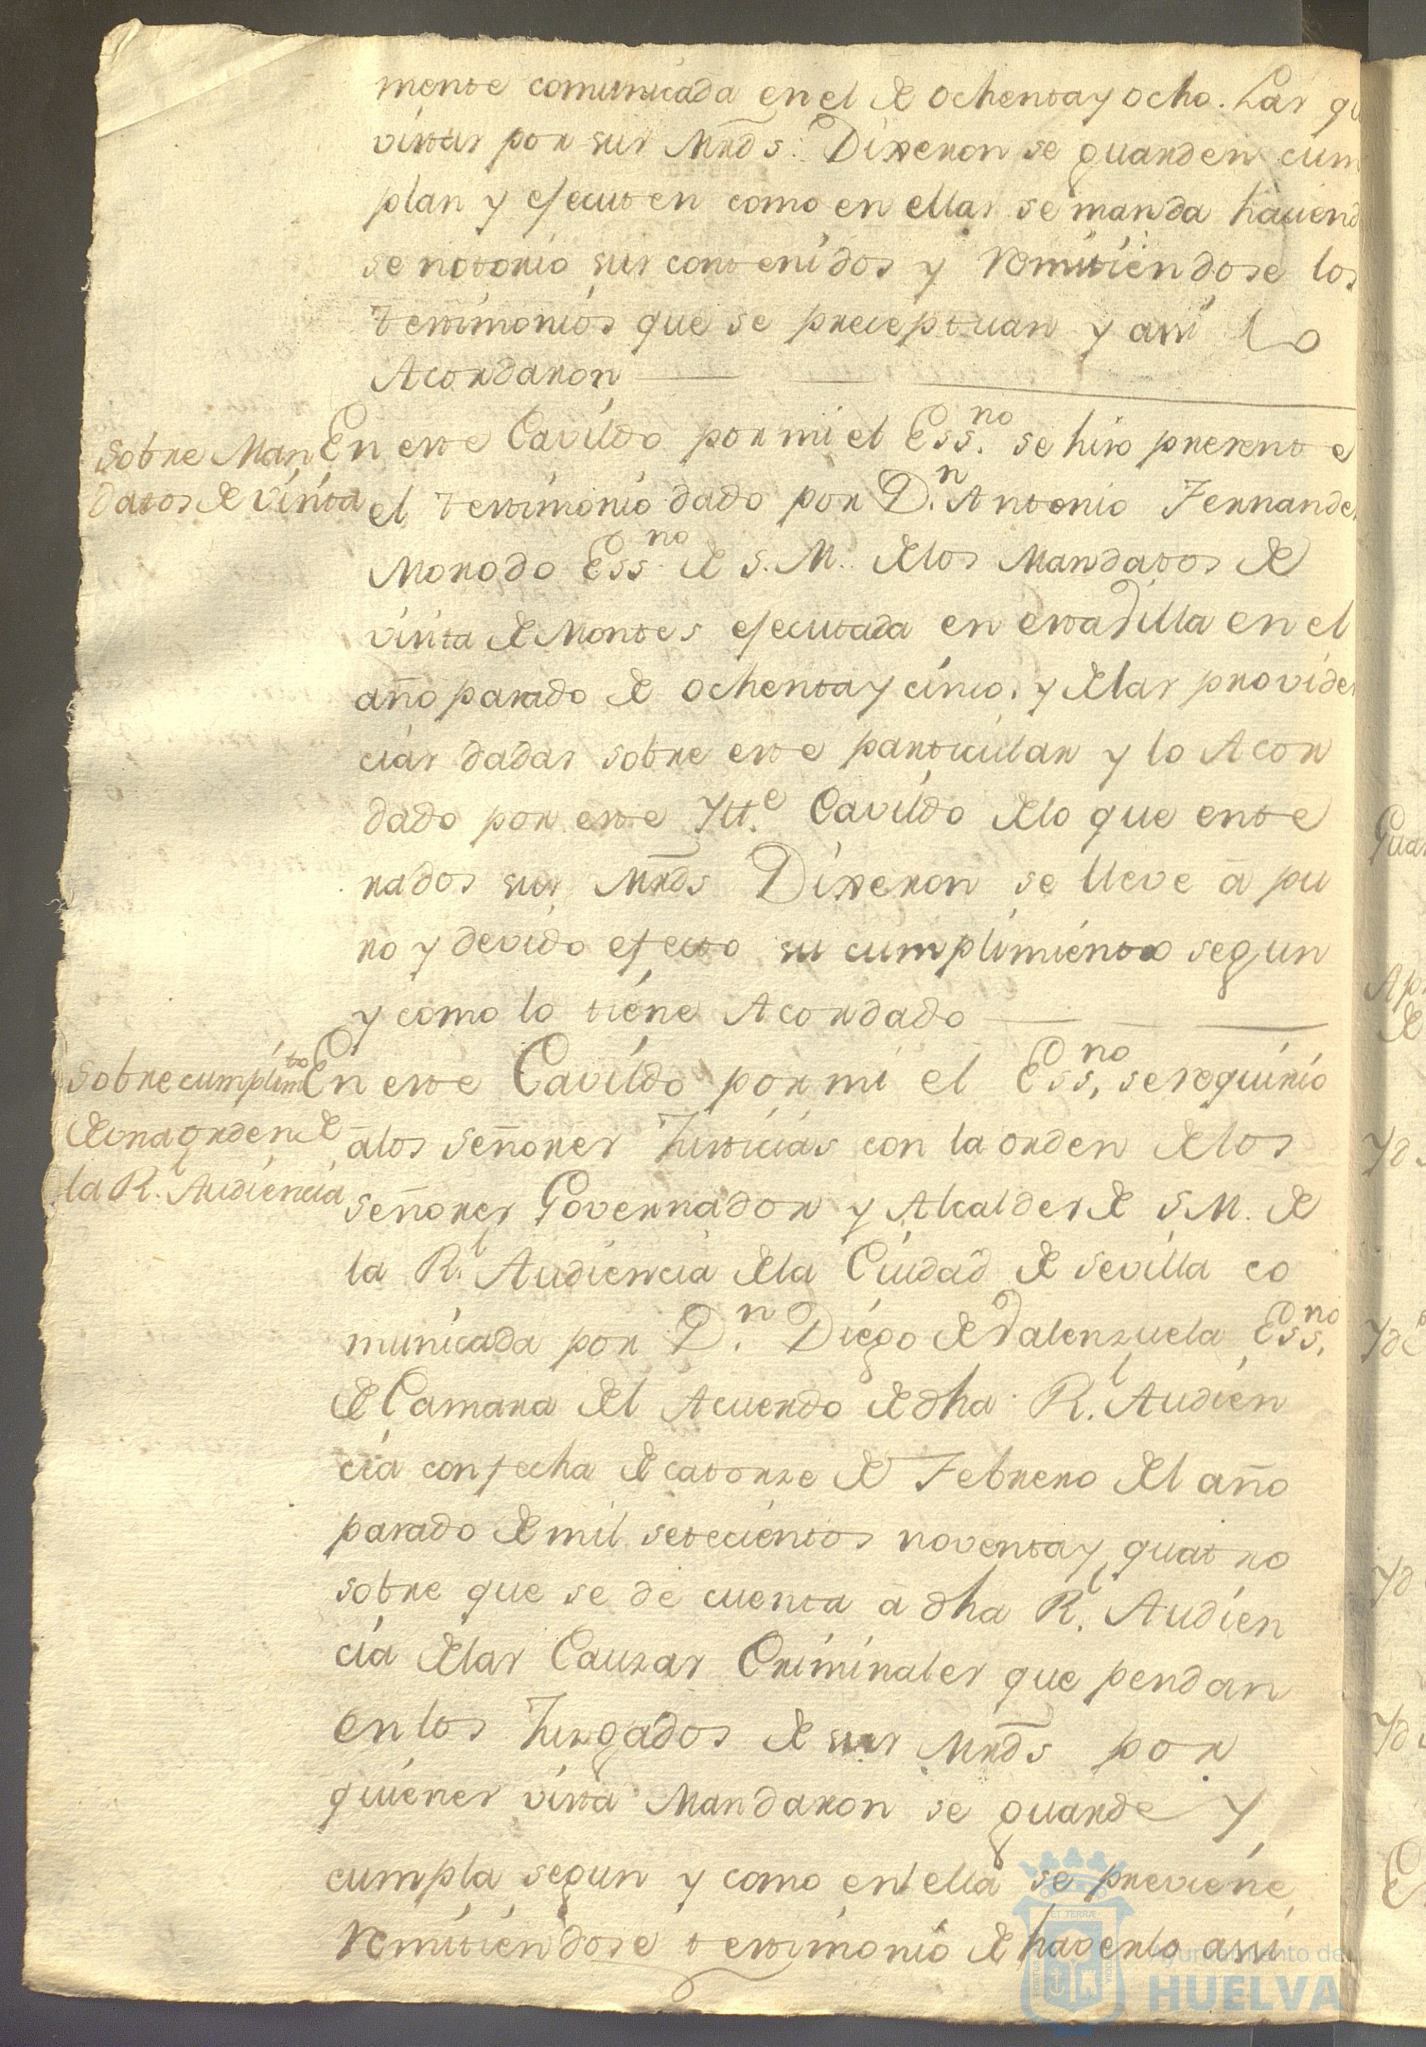 mente comunicada en el de ochenta y ocho. Las q
vistas por sus Mrds. Dixeron se guarden cum
plan y esecuten como en ellas se manda haciend
se notorio sus contenidos y remitiendose los
testimonios que se preceptuan y assi lo
Acordaron
Sobre Man
datos de visita
En este Cavildo por mi el Ess.no se hizo presente
el testimonio dado por D.n Antonio Fernande
Morodo Ess.no de S. M. de los Mandatos de
visita de Montes esecutada en esta Villa en el
año pasado de ochenta y cinco, y de las providen
cias dadas sobre este particular y lo Acor
dado por este Ytt.e Cavildo de lo que ente
rados sus Mrds Dixeron se lleve à pu
ro y devido efecto su cumplimiento segun
y como lo tiene Acordado
Sobre cumplim.to
de una orden de
la R.l Audiencia
En este Cavildo por mi el Ess.no se requirio
a los señores Justicias con la orden de los
señores Governador y Alcaldes de S.M. de
la R.l Audiencia de la Ciudad de Sevilla co
municada por D.n Diego de Valenzuela Ess.no
de Camara del Acuerdo de dha R.l Audien
cia con fecha de catorze de Febrero del año
pasado de mil setecientos noventa y quatro
sobre que se dè cuenta a dha R.l Audien
cia de las Cauzas Criminales que pendan
en los Juzgados de sus Mrds por
quienes vista Mandaron se guarde y
cumpla segun y como en ella se previene
remitiendose testimonio de haserlo assi
Ayuntamiento de
HUELVA